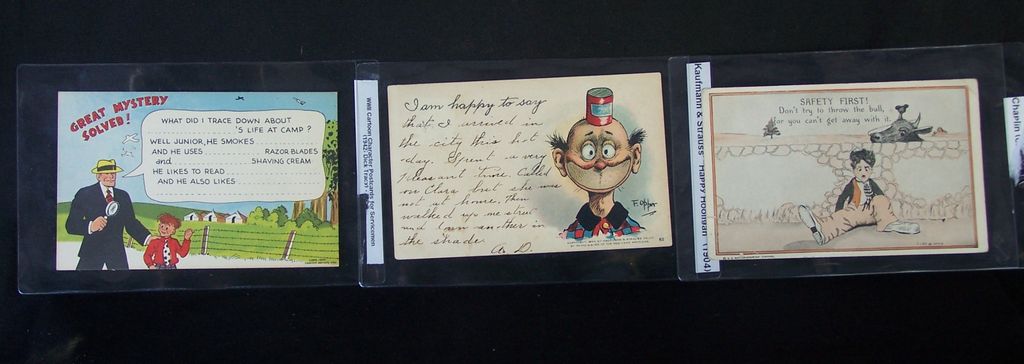 GREAT MYSTERY
SOLVED!
WHAT DID I TRACE DOWN ABOUT
'S LIFE AT CAMP?
WELL JUNIOR, HE SMOKES
AND HE USES RAZOR BLADES
and SHAVING CREAM
HE LIKES TO READ
AND HE ALSO LIKES
WWII Cartoon Character Postcards for Servicemen
(1942: Dick Tracy)
I am happy to say
that I arrived in
the city this hot
day. I spent a very
Pleasant time. Called
on Clara but she was
not at home. Then
walked up
in
the shade.
A. D.
F. Opper
Kaufmann & Strauss Happy Hooligan (1904)
SAFETY FIRST!
Don't try to throw the bull,
for you can't get away with it.
Charlie